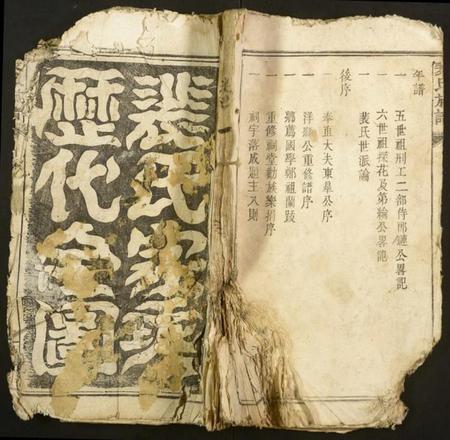 裴氏族譜
年譜
一 五世祖刑工二部侍郎璉公畧記
一 六世祖探花及第綸公畧記
一 裴氏世派論
後序
一 奉直大夫東皋公序
一 洋嶽公重修譜序
一 鄉薦國學鄭祖蘭跋
一 重修祠堂勸族樂捐序
一 祠宇落成題主入則
裴氏家乘
歷代全圖